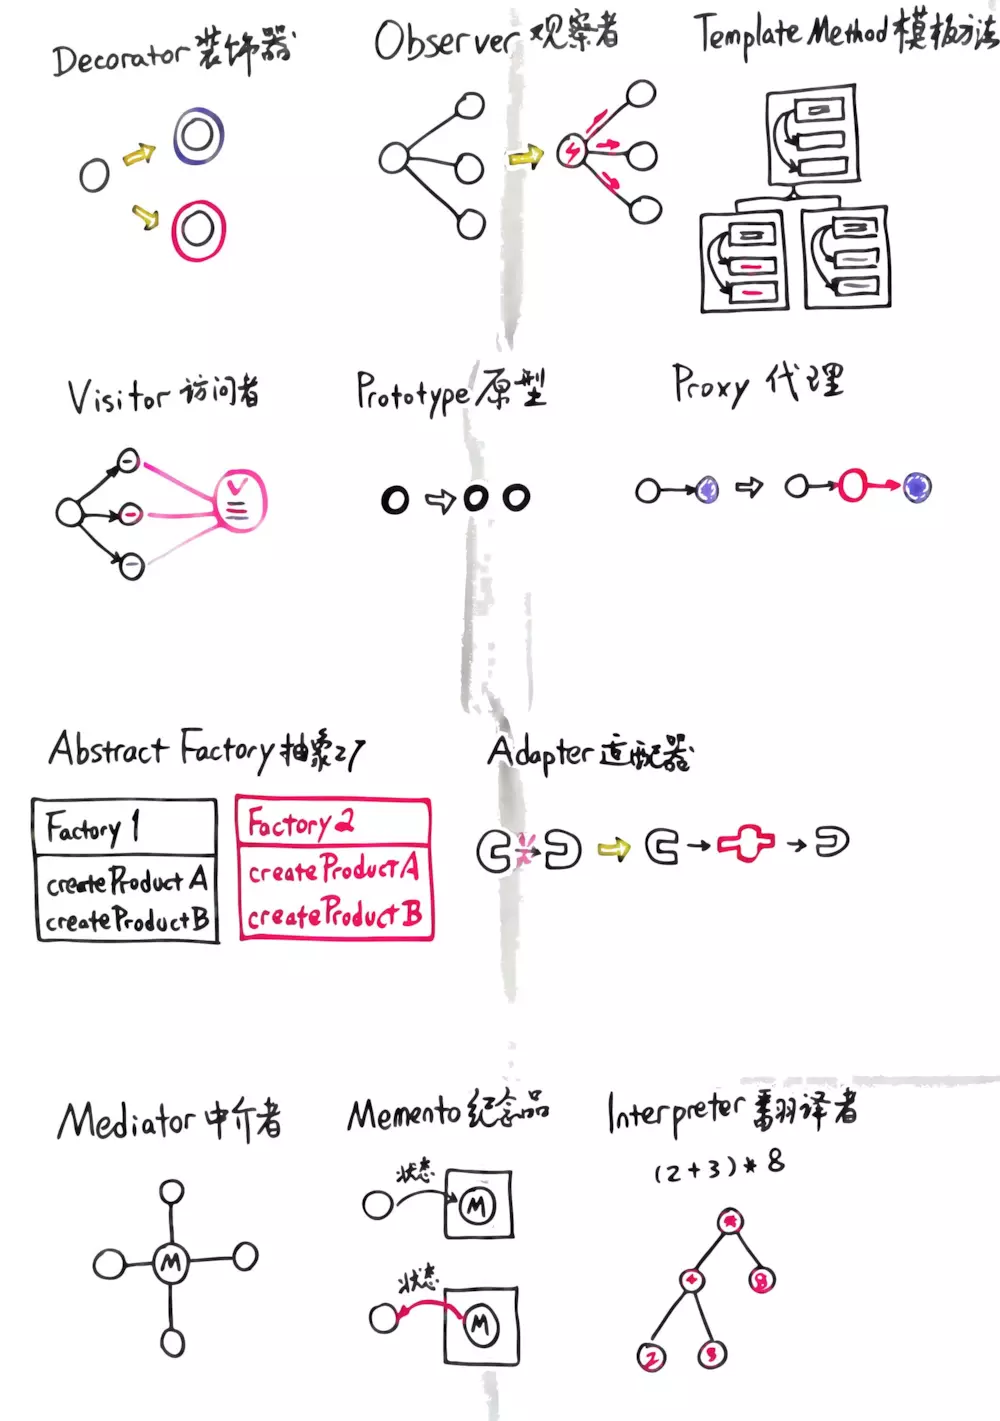 Decorator 装饰器
Observer 观察者
Template Method 模板方法
Visitor 访问者
Prototype 原型
Proxy 代理
Abstract Factory 抽象工厂
Adapter 适配器
Factory 1
createProduct A
createProduct B
Factory 2
createProduct A
createProduct B
Mediator 中介者
Memento 纪念品
Interpreter 翻译者
(2+3)*8
M
状态
M
状态
M
*
+
8
2
3